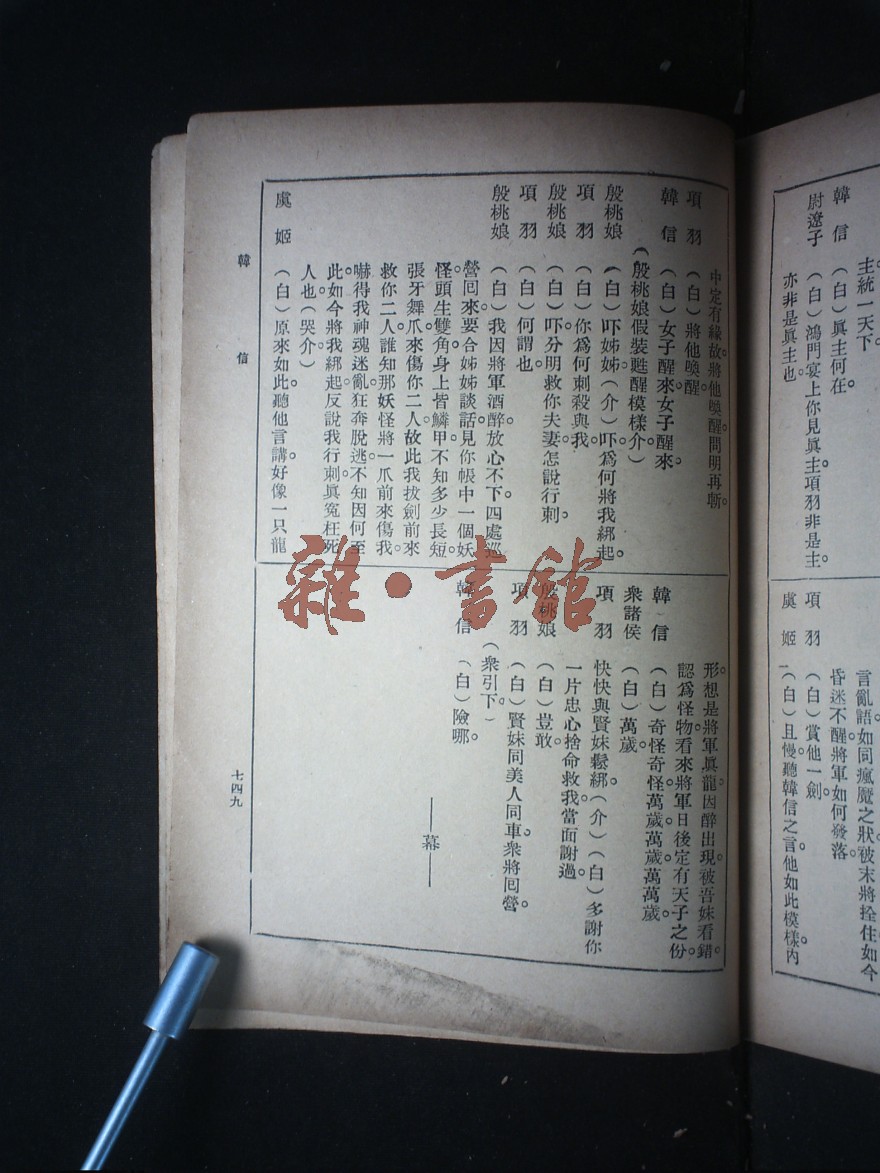 主統一天下。
韓　信　（白）眞主何在。
尉遼子　（白）鴻門宴上你見眞主項羽非是主
亦非是眞主也。
言亂語如同瘋魔之狀被末將拴住如今
昏迷不醒將軍如何發落
項　羽　（白）賞他一劍。
虞　姬　（白）且慢聽韓信之言他如此模樣內
中定有緣故將他喚醒問明再斬。
項　羽　（白）將他喚醒
韓　信　（白）女子醒來女子醒來。
（殷桃娘假裝甦醒模樣介）
殷桃娘　（白）吓姊姊（介）吓爲何將我綁起。
項　羽　（白）你爲何刺殺與我
殷桃娘　（白）吓分明救你夫妻怎說行刺。
項　羽　（白）何謂也
殷桃娘　（白）我因將軍酒醉放心不下。四處巡
營囘來要合姊姊談話見你帳中一個妖
怪。頭生雙角身上皆鱗甲不知多少長短。
張牙舞爪來傷你二人故此我拔劍前來
救你二人。誰知那妖怪將一爪前來傷我。
嚇得我神魂迷亂。狂奔脫逃。不知因何至
此。如今將我綁起反說我行刺眞冤枉死
人也（哭介）
虞　姬　（白）原來如此。聽他言講好像一只龍
形。想是將軍眞龍因醉出現。被吾妹看錯。
認爲怪物。看來將軍日後定有天子之份。
韓　信　（白）奇怪奇怪萬歲。萬歲。萬萬歲。
衆諸侯　（白）萬歲。
項　羽　快快與賢妹鬆綁（介）（白）多謝你
一片忠心捨命救我。當面謝過。
殷桃娘　（白）豈敢。
項　羽　（白）賢妹同美人同車。衆將囘營。
（衆引下。）
韓　信　（白）險哪。
——幕——
韓　信
七四九
雜・書館